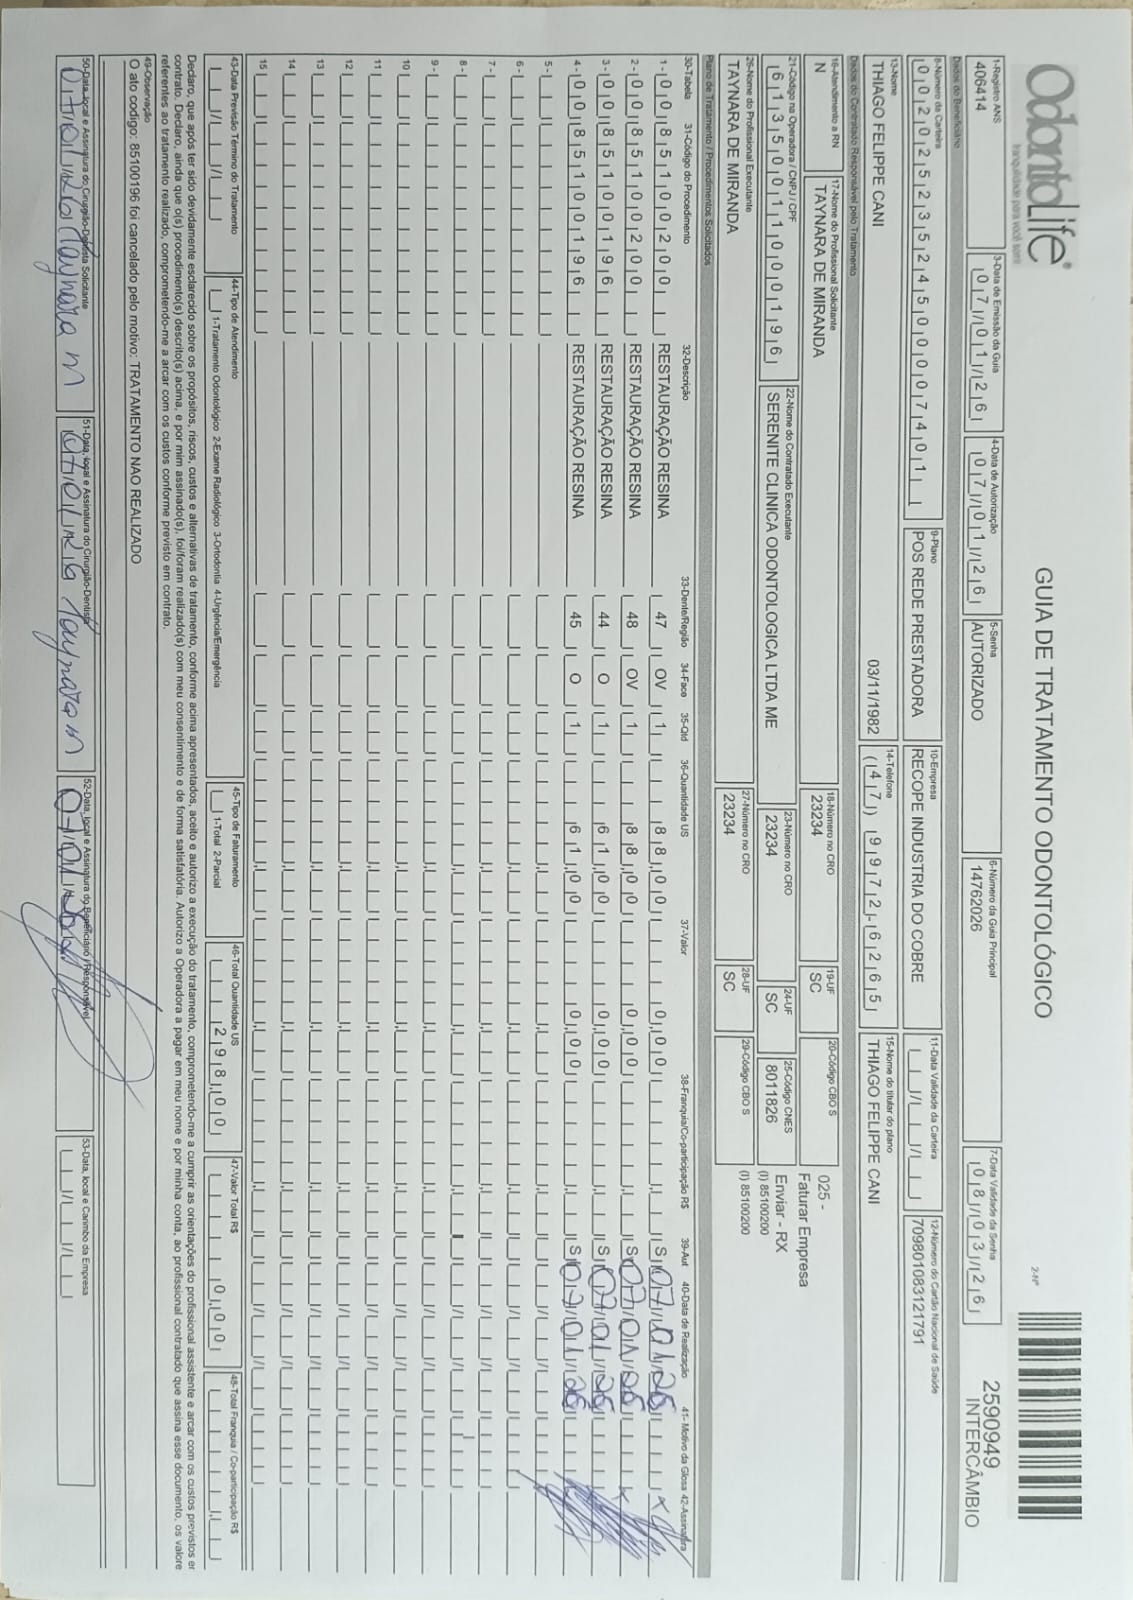 OdontoLife®
tranquilidade para você sorrir
GUIA DE TRATAMENTO ODONTOLÓGICO
2-Nº
2590949
INTERCÂMBIO
1-Registro ANS
406414
3-Data de Emissão da Guia
07/01/26
4-Data de Autorização
07/01/26
5-Senha
AUTORIZADO
6-Número da Guia Principal
14762026
7-Data Validade da Senha
08/03/26
Dados do Beneficiário
8-Número da Carteira
00202523524500007401
9-Plano
POS REDE PRESTADORA
10-Empresa
RECOPE INDUSTRIA DO COBRE
11-Data Validade da Carteira
12-Número do Cartão Nacional de Saúde
709801083121791
13-Nome
THIAGO FELIPPE CANI
03/11/1982
14-Telefone
(47) 99972-6265
15-Nome do titular do plano
THIAGO FELIPPE CANI
Dados do Contratado Responsável pelo Tratamento
16-Atendimento a RN
N
17-Nome do Profissional Solicitante
TAYNARA DE MIRANDA
18-Número no CRO
23234
19-UF
SC
20-Código CBO S
025 -
Faturar Empresa
21-Código na Operadora / CNPJ / CPF
61350011000196
22-Nome do Contratado Executante
SERENITE CLINICA ODONTOLOGICA LTDA ME
23-Número no CRO
23234
24-UF
SC
25-Código CNES
8011826
Enviar - RX
(I) 85100200
(I) 85100200
26-Nome do Profissional Executante
TAYNARA DE MIRANDA
27-Número no CRO
23234
28-UF
SC
29-Código CBO S
Plano de Tratamento / Procedimentos Solicitados
30-Tabela 31-Código do Procedimento 32-Descrição 33-Dente/Região 34-Face 35-Qtd 36-Quantidade US 37-Valor 38-Franquia/Co-participação R$ 39-Aut 40-Data de Realização 41- Motivo da Glosa 42-Assinatura
1- 00 85100200 RESTAURAÇÃO RESINA 47 OV 1 88,00 0,00 S 07/01/26
2- 00 85100200 RESTAURAÇÃO RESINA 48 OV 1 88,00 0,00 S 07/01/26
3- 00 85100196 RESTAURAÇÃO RESINA 44 O 1 61,00 0,00 S 07/01/26
4- 00 85100196 RESTAURAÇÃO RESINA 45 O 1 61,00 0,00 S 07/01/26
5-
6-
7-
8-
9-
10
11
12
13
14
15
43-Data Previsão Término do Tratamento
44-Tipo de Atendimento
1-Tratamento Odontológico 2-Exame Radiológico 3-Ortodontia 4-Urgência/Emergência
45-Tipo de Faturamento
1-Total 2-Parcial
46-Total Quantidade US
298,00
47-Valor Total R$
0,00
48-Total Franquia / Co-participação R$
Declaro, que após ter sido devidamente esclarecido sobre os propósitos, riscos, custos e alternativas de tratamento, conforme acima apresentados, aceito e autorizo a execução do tratamento, comprometendo-me a cumprir as orientações do profissional assistente e arcar com os custos previstos er
contrato. Declaro, ainda que o(s) procedimento(s) descrito(s) acima, e por mim assinado(s), foi/foram realizado(s) com meu consentimento e de forma satisfatória. Autorizo a Operadora a pagar em meu nome e por minha conta, ao profissional contratado que assina esse documento, os valore
referentes ao tratamento realizado, comprometendo-me a arcar com os custos conforme previsto em contrato.
49-Observação
O ato codigo: 85100196 foi cancelado pelo motivo: TRATAMENTO NAO REALIZADO
50-Data, local e Assinatura do Cirurgião-Dentista Solicitante
07/01/26 Taynara M
51-Data, local e Assinatura do Cirurgião-Dentista
07/01/26 Taynara M
52-Data, local e Assinatura do Beneficiário / Responsável
07/01/26
53-Data, local e Carimbo da Empresa